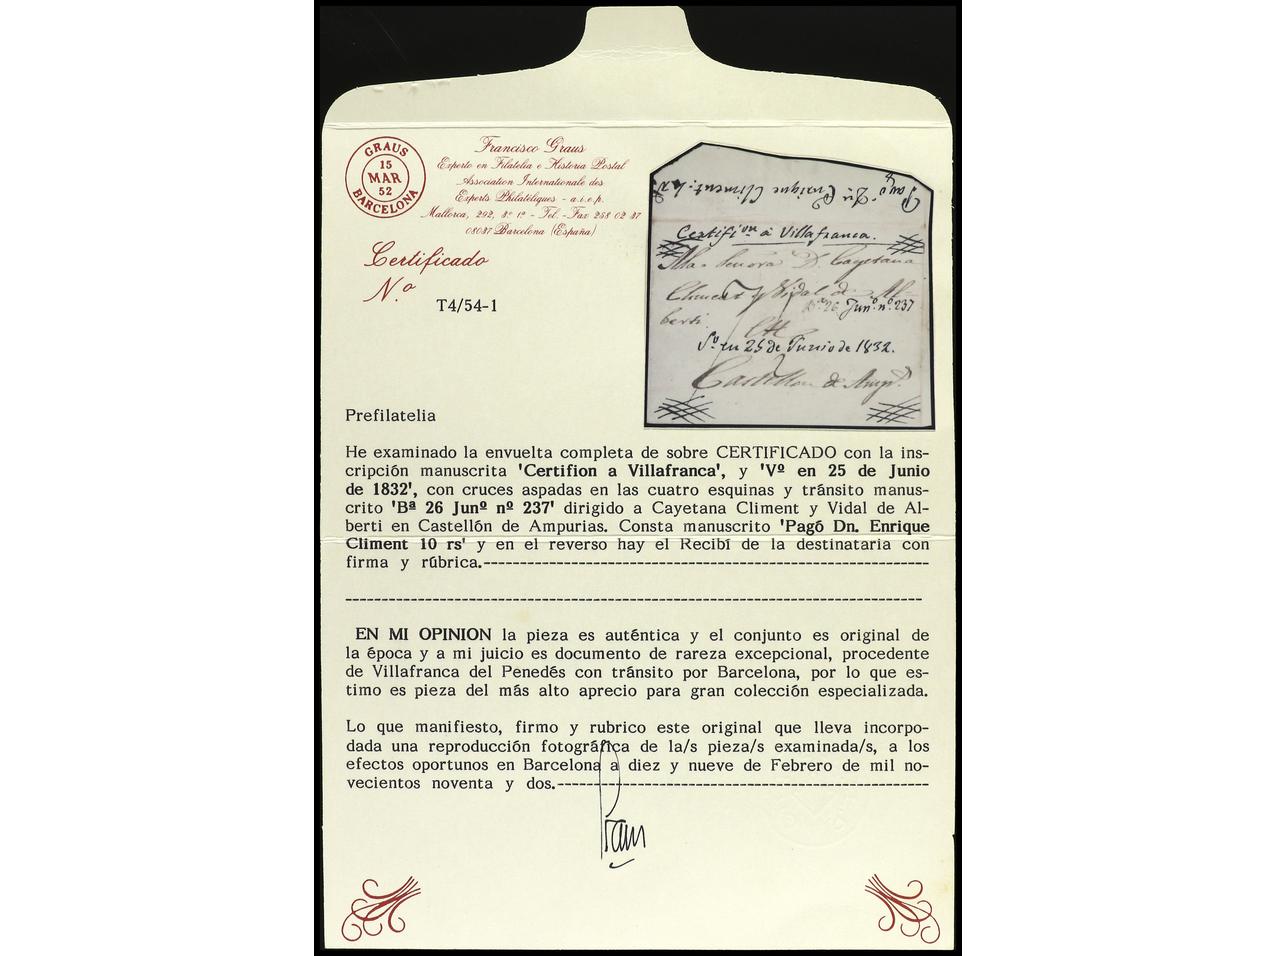 GRAUS
15
MAR
52
BARCELONA
Francisco Graus
Experto en Filatelia e Historia Postal
Association Internationale des
Experts Philatéliques - a.i.e.p.
Mallorca, 292, 3º 1ª - Tel. - Fax 258 02 37
08037 Barcelona (España)
Certificado
N.º
T4/54-1
Pagó Dn. Enrique Climent
Certifion à Villafranca.
A la Señora Dª Cayetana
Climent y Vidal de Al-
berti.
Bª 26 Junº nº 237
Vº en 25 de Junio de 1832.
Castellon de Amps.
Prefilatelia
He examinado la envuelta completa de sobre CERTIFICADO con la ins-
cripción manuscrita 'Certifion a Villafranca', y 'Vº en 25 de Junio
de 1832', con cruces aspadas en las cuatro esquinas y tránsito manus-
crito 'Bª 26 Junº nº 237' dirigido a Cayetana Climent y Vidal de Al-
berti en Castellón de Ampurias. Consta manuscrito 'Pagó Dn. Enrique
Climent 10 rs' y en el reverso hay el Recibí de la destinataria con
firma y rúbrica.------------------------------------------------
EN MI OPINION la pieza es auténtica y el conjunto es original de
la época y a mi juicio es documento de rareza excepcional, procedente
de Villafranca del Penedés con tránsito por Barcelona, por lo que es-
timo es pieza del más alto aprecio para gran colección especializada.
Lo que manifiesto, firmo y rubrico este original que lleva incorpo-
dada una reproducción fotográfica de la/s pieza/s examinada/s, a los
efectos oportunos en Barcelona a diez y nueve de Febrero de mil no-
vecientos noventa y dos.----------------------------------------